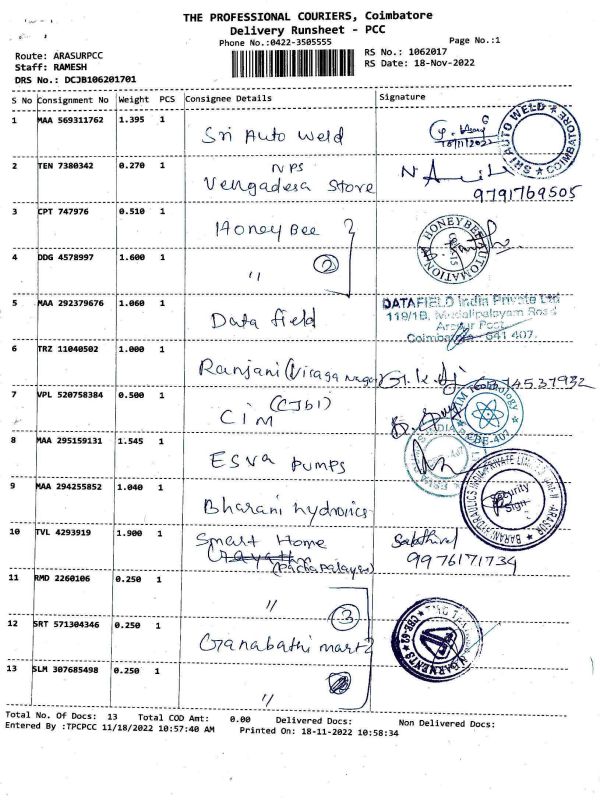 THE PROFESSIONAL COURIERS, Coimbatore
Delivery Runsheet - PCC
Phone No.:0422-3505555
Page No.:1
Route: ARASURPCC
Staff: RAMESH
DRS No.: DCJB106201701
RS No.: 1062017
RS Date: 18-Nov-2022
S No Consignment No Weight PCS Consignee Details Signature
1 MAA 569311762 1.395 1 Sri Auto Weld
SRI AUTO WELD ★ COIMBATORE
2 TEN 7380342 0.270 1 NPS
Vengadesa Store
9791769505
3 CPT 747976 0.510 1 Honey Bee
HONEYBEE AUTOMATION
4 DDG 4578997 1.600 1 "
2
5 MAA 292379676 1.060 1 Data field
DATAFIELD India Private Ltd
119/1B, Mudalipalayam Road
Arasur Post
Coimbatore - 641 407.
6 TRZ 11040502 1.000 1 Ranjani (Viraga Nagar)
7 VPL 520758384 0.500 1 (CJb1)
CIM
CBE-407
8 MAA 295159131 1.545 1 ESVA Pumps
9 MAA 294255852 1.040 1 Bharani hydronics
Security
Sign
10 TVL 4293919 1.900 1 Smart Home
Sakthivel
9976171734
11 RMD 2260106 0.250 1 "
12 SRT 571304346 0.250 1 Ganabathi mart
3
GARMENTS
CBE-62
13 SLM 307685498 0.250 1 "
Total No. Of Docs: 13 Total COD Amt: 0.00 Delivered Docs: Non Delivered Docs:
Entered By :TPCPCC 11/18/2022 10:57:40 AM Printed On: 18-11-2022 10:58:34